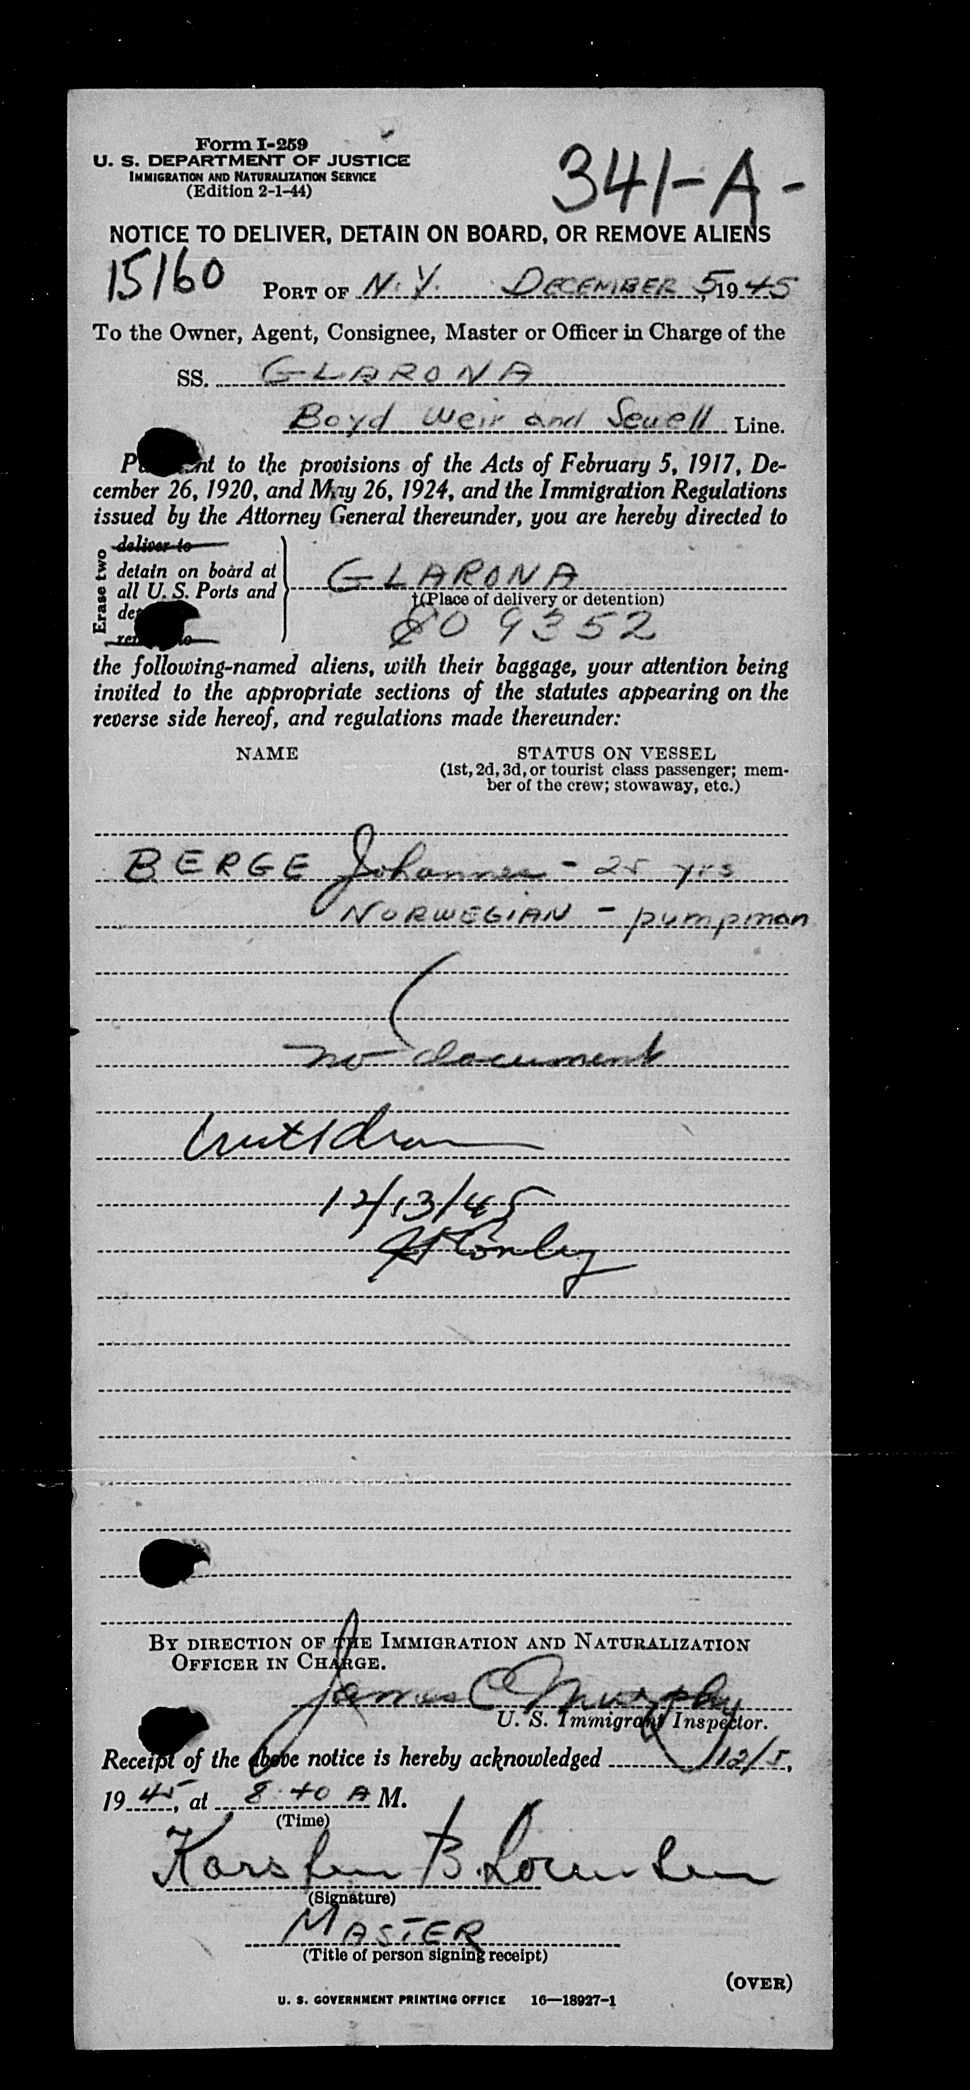 Form I-259
U. S. DEPARTMENT OF JUSTICE
IMMIGRATION AND NATURALIZATION SERVICE
(Edition 2-1-44)
341-A-
NOTICE TO DELIVER, DETAIN ON BOARD, OR REMOVE ALIENS
15160
PORT OF N.Y. DECEMBER 5, 1945
To the Owner, Agent, Consignee, Master or Officer in Charge of the
SS. GLARONA
Boyd Weir and Sewell Line.
to the provisions of the Acts of February 5, 1917, De-
cember 26, 1920, and May 26, 1924, and the Immigration Regulations
issued by the Attorney General thereunder, you are hereby directed to
Erase two
deliver to
detain on board at
all U. S. Ports and
GLARONA
†(Place of delivery or detention)
09352
the following-named aliens, with their baggage, your attention being
invited to the appropriate sections of the statutes appearing on the
reverse side hereof, and regulations made thereunder:
NAME STATUS ON VESSEL
(1st, 2d, 3d, or tourist class passenger; mem-
ber of the crew; stowaway, etc.)
BERGE Johannes - 25 yrs
NORWEGIAN - pumpman
no document
12/13/45
BY DIRECTION OF THE IMMIGRATION AND NATURALIZATION
OFFICER IN CHARGE.
James C Murphy
U. S. Immigrant Inspector.
Receipt of the above notice is hereby acknowledged 12/5,
1945, at 8:40 A M.
(Time)
Karsten B.
(Signature)
MASTER
(Title of person signing receipt)
(OVER)
U. S. GOVERNMENT PRINTING OFFICE 16—18927-1